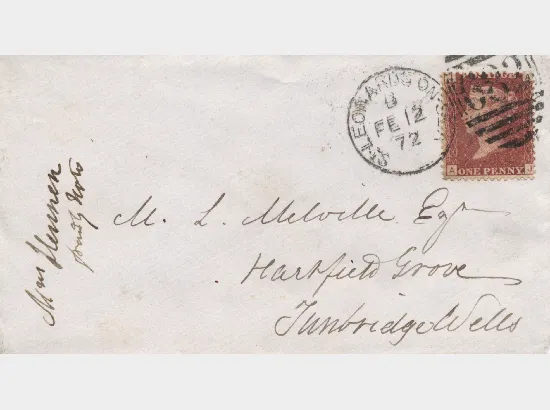 ST. LEONARDS ON SEA
B
FE 12
72
A J
ONE PENNY
M. L. Melville Esqr
Hartfield Grove
Tunbridge Wells
Mrs